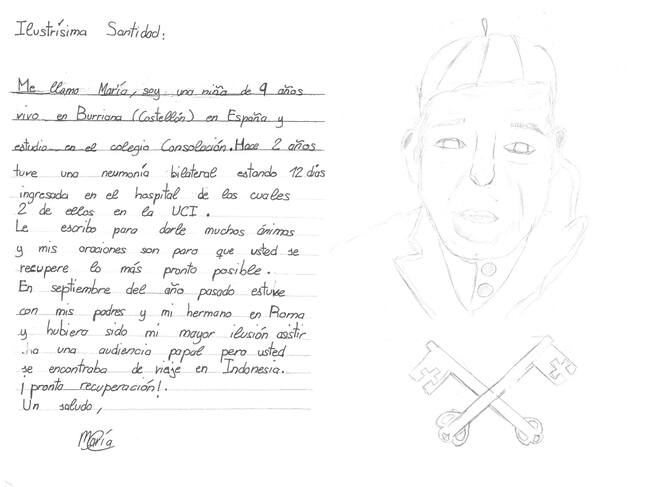 Ilustrísima Santidad:
Me llamo María, soy una niña de 9 años
vivo en Burriana (Castellón) en España y
estudio en el colegio Consolación. Hace 2 años
tuve una neumonía bilateral estando 12 días
ingresada en el hospital de los cuales
2 de ellos en la UCI.
Le escribo para darle muchos ánimas
y mis oraciones son para que usted se
recupere lo más pronto posible.
En septiembre del año pasado estuve
con mis padres y mi hermano en Roma
y hubiera sido mi mayor ilusión asistir
ha una audiencia papal pero usted
se encontraba de viaje en Indonesia.
¡pronta recuperación!.
Un saludo,
María